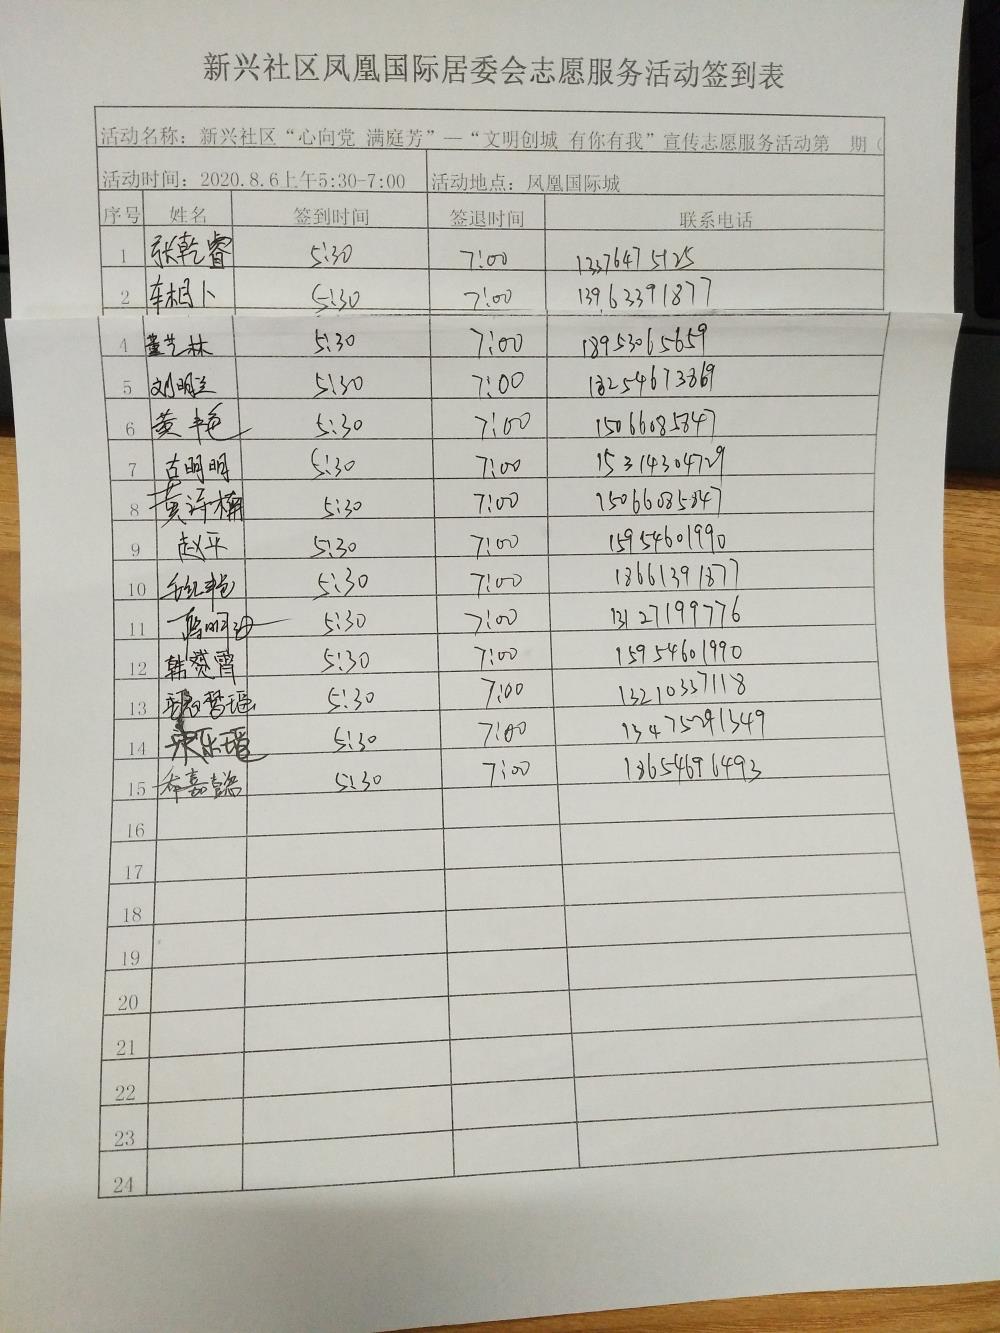 新兴社区凤凰国际居委会志愿服务活动签到表
活动名称：新兴社区“心向党 满庭芳”—“文明创城 有你有我”宣传志愿服务活动第 期（
活动时间：2020.8.6上午5:30-7:00 活动地点：凤凰国际城
序号 姓名 签到时间 签退时间 联系电话
1 张乾睿 5:30 7:00 13376475125
2 车相卜 5:30 7:00 13963391877
4 董芝林 5:30 7:00 18953065659
5 刘明 5:30 7:00 18254673869
6 黄艳 5:30 7:00 15066085847
7 古明明 5:30 7:00 15314304729
8 黄诗楠 5:30 7:00 15066085847
9 赵平 5:30 7:00 15954601990
10 5:30 7:00 18661391877
11 5:30 7:00 13127199776
12 韩霄 5:30 7:00 15954601990
13 5:30 7:00 13210337118
14 5:30 7:00 13475291349
15 嘉懿 5:30 7:00 18654696493
16
17
18
19
20
21
22
23
24